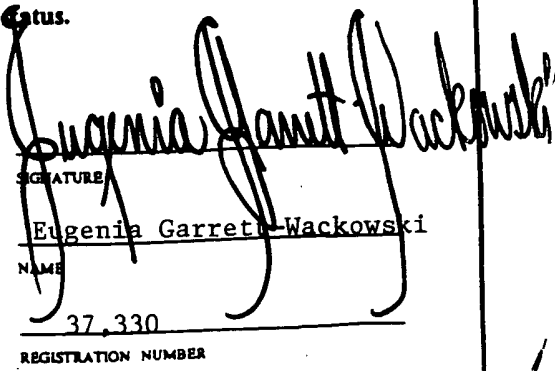 Eugenia Garrett Wackowski
SIGNATURE
Eugenia Garrett-Wackowski
NAME
37,330
REGISTRATION NUMBER